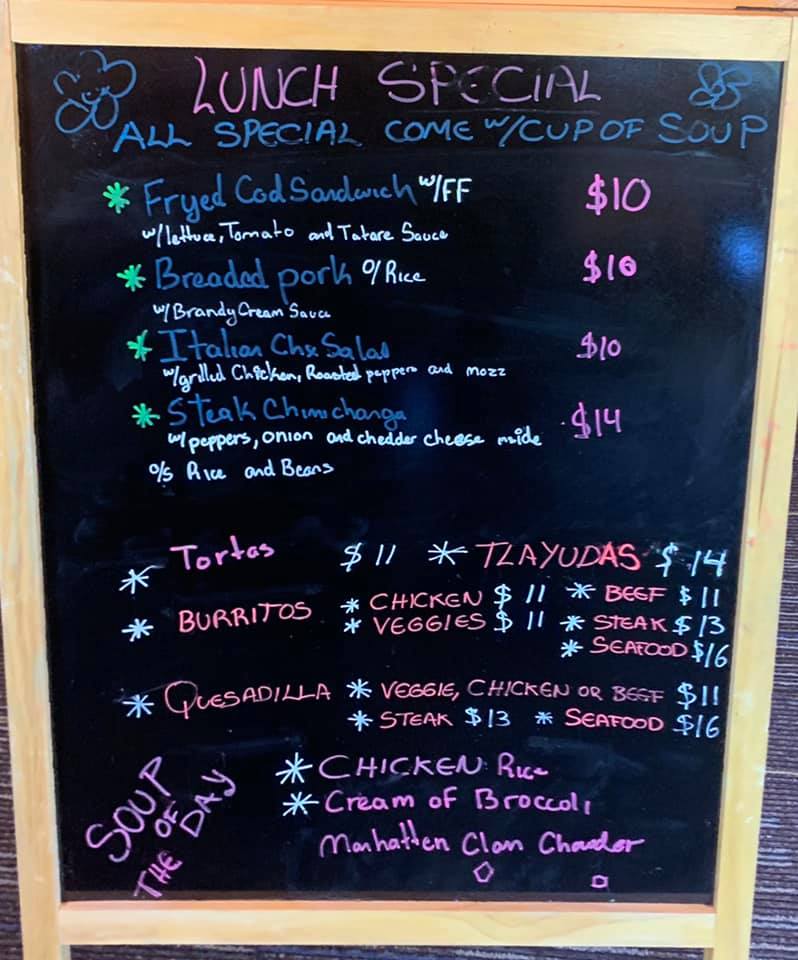 LUNCH SPECIAL
ALL SPECIAL COME w/CUP OF SOUP
* Fryed Cod Sandwich w/FF $10
w/lettuce, Tomato and Tatare Sauce
* Breaded pork o/Rice $10
w/Brandy Cream Sauce
* Italian Chx Salad $10
w/grilled Chicken, Roasted peppers and mozz
* Steak Chimichanga $14
w/peppers, onion and chedder cheese inside
o/s Rice and Beans
* Tortas $11 * TLAYUDAS $14
* BURRITOS * CHICKEN $11 * BEEF $11
* VEGGIES $11 * STEAK $13
* SEAFOOD $16
* QUESADILLA * VEGGIE, CHICKEN OR BEEF $11
* STEAK $13 * SEAFOOD $16
SOUP OF THE DAY
* CHICKEN Rice
* Cream of Broccoli
Manhatten Clam Chowder